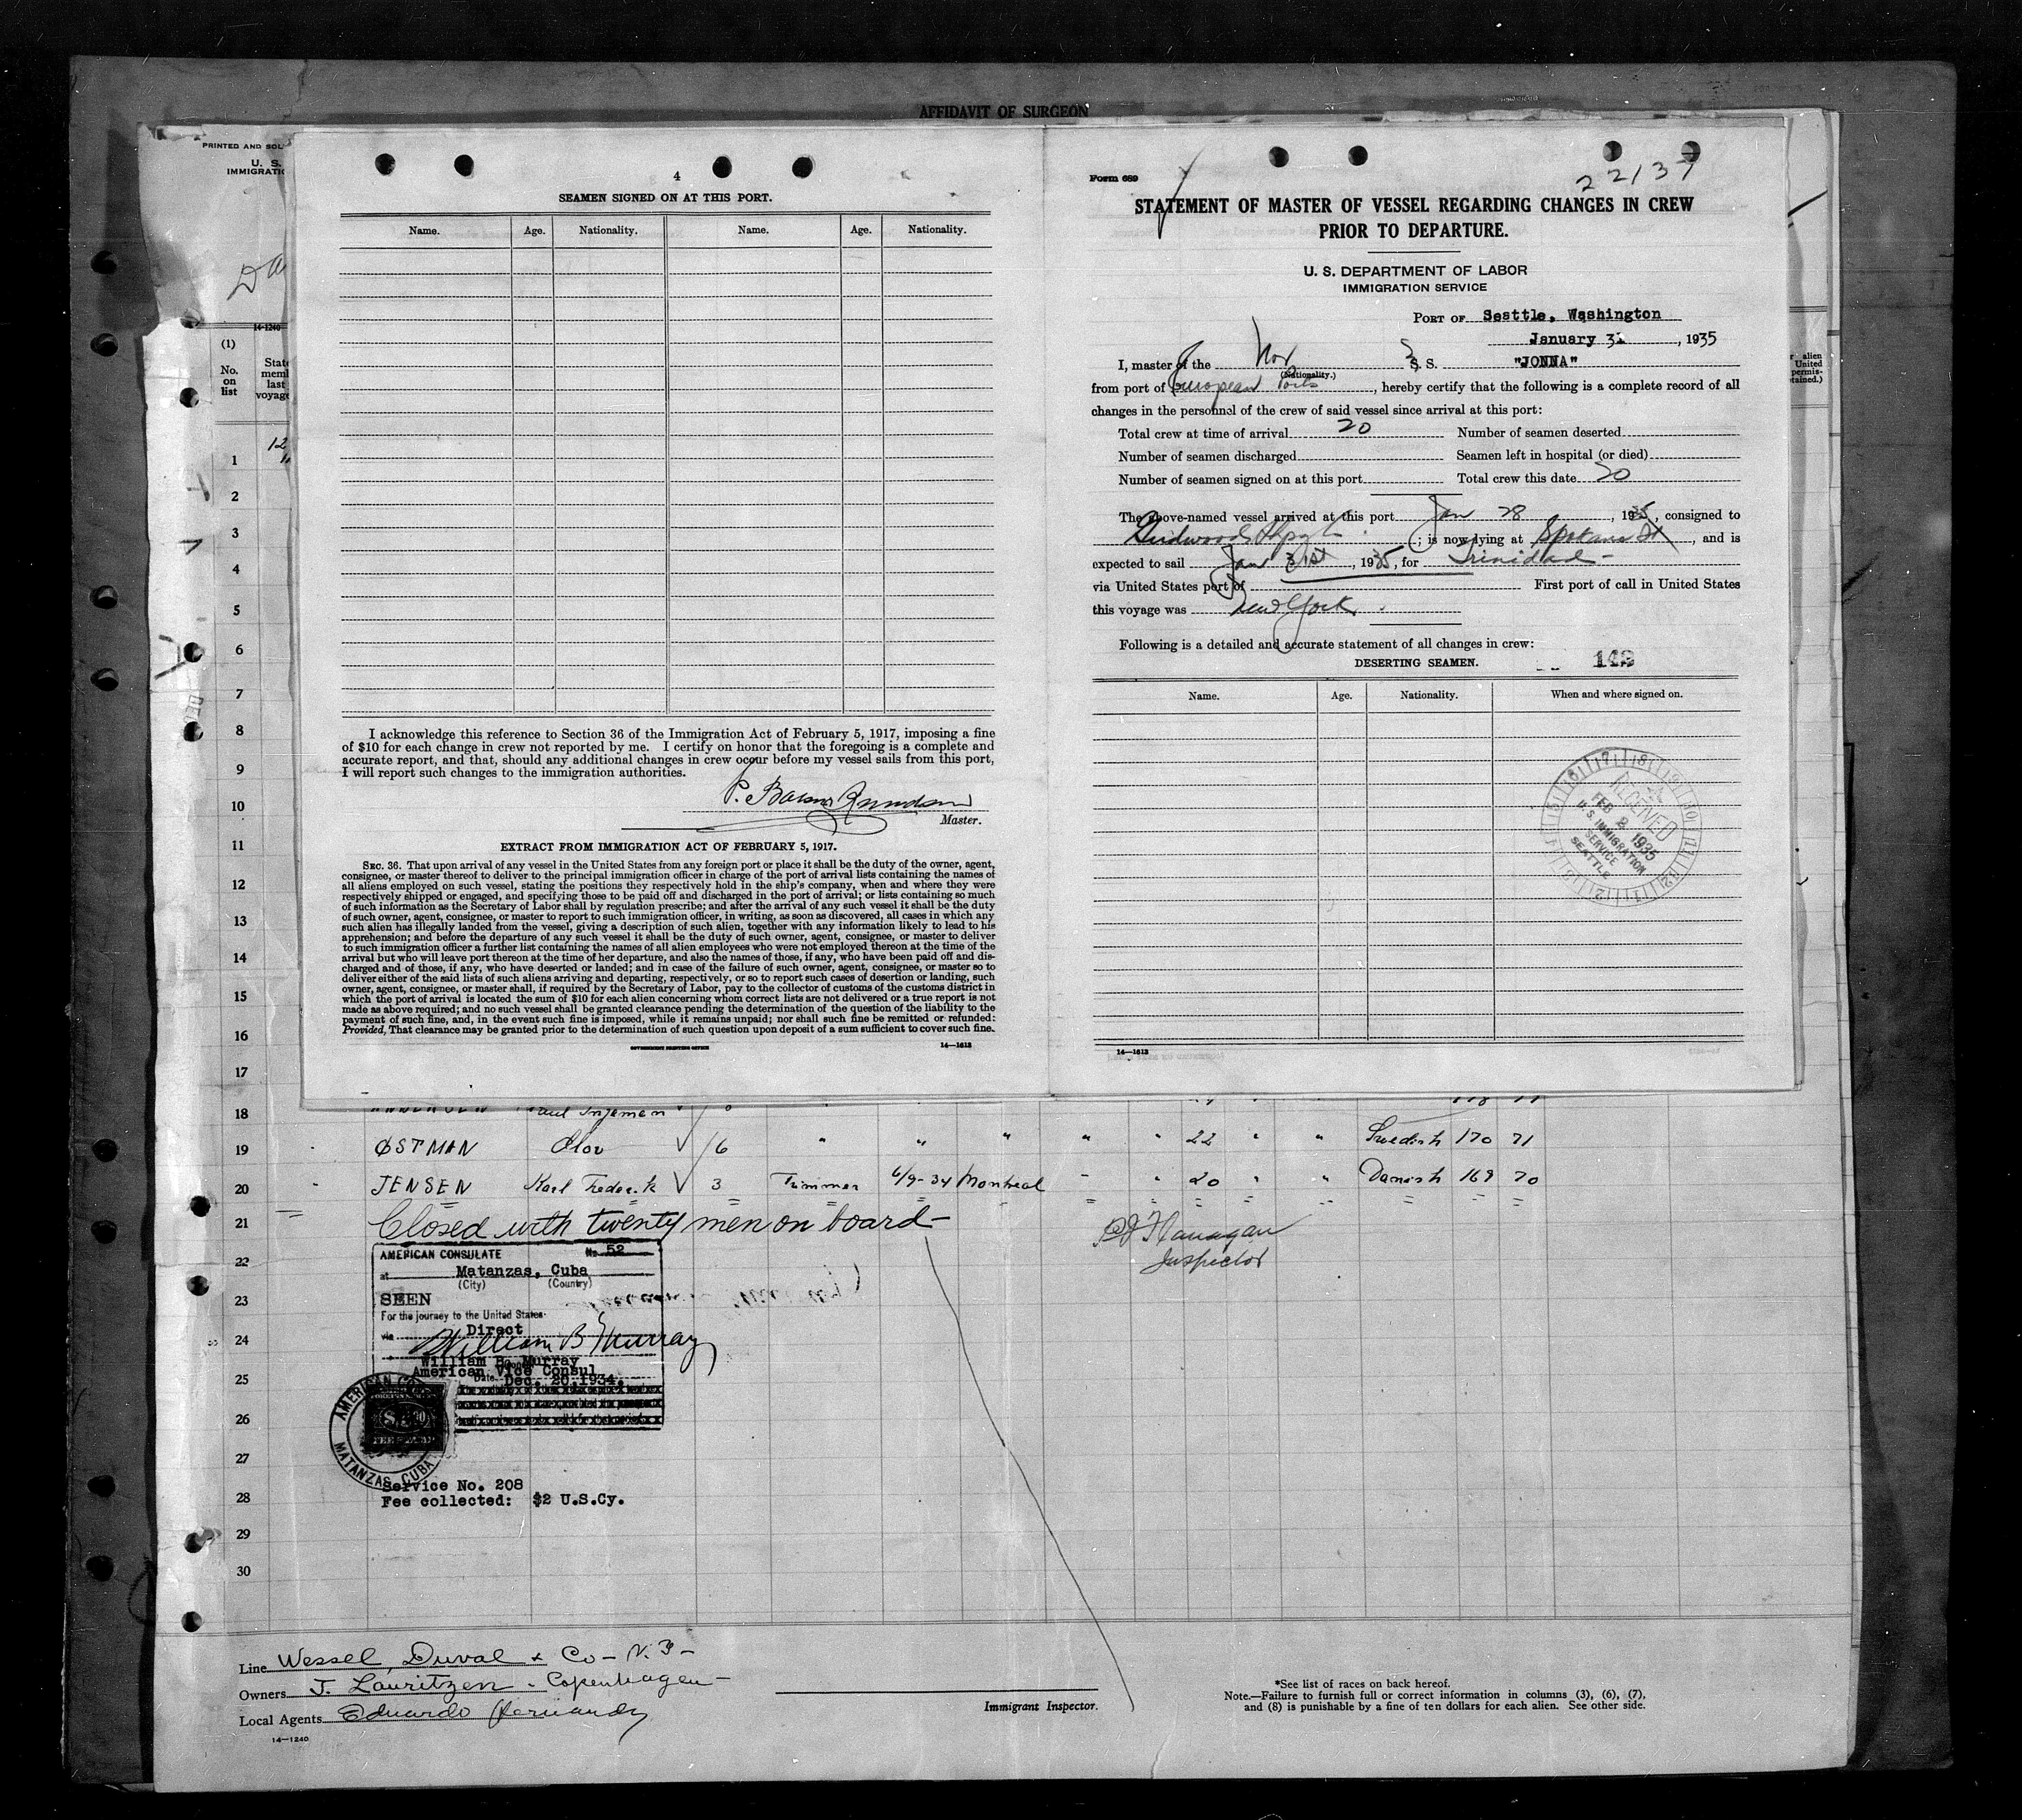 AFFIDAVIT OF SURGEON
PRINTED AND SOL
U. S.
IMMIGRATI
14-1240
(1)
No. on list
State
memb
last
voyage
1
2
3
4
5
6
7
8
9
10
11
12
13
14
15
16
17
4
SEAMEN SIGNED ON AT THIS PORT.
Name. Age. Nationality. Name. Age. Nationality.
I acknowledge this reference to Section 36 of the Immigration Act of February 5, 1917, imposing a fine
of $10 for each change in crew not reported by me. I certify on honor that the foregoing is a complete and
accurate report, and that, should any additional changes in crew occur before my vessel sails from this port,
I will report such changes to the immigration authorities.
Master.
EXTRACT FROM IMMIGRATION ACT OF FEBRUARY 5, 1917.
SEC. 36. That upon arrival of any vessel in the United States from any foreign port or place it shall be the duty of the owner, agent,
consignee, or master thereof to deliver to the principal immigration officer in charge of the port of arrival lists containing the names of
all aliens employed on such vessel, stating the positions they respectively hold in the ship's company, when and where they were
respectively shipped or engaged, and specifying those to be paid off and discharged in the port of arrival; or lists containing so much
of such information as the Secretary of Labor shall by regulation prescribe; and after the arrival of any such vessel it shall be the duty
of such owner, agent, consignee, or master to report to such immigration officer, in writing, as soon as discovered, all cases in which any
such alien has illegally landed from the vessel, giving a description of such alien, together with any information likely to lead to his
apprehension; and before the departure of any such vessel it shall be the duty of such owner, agent, consignee, or master to deliver
to such immigration officer a further list containing the names of all alien employees who were not employed thereon at the time of the
arrival but who will leave port thereon at the time of her departure, and also the names of those, if any, who have been paid off and dis-
charged and of those, if any, who have deserted or landed; and in case of the failure of such owner, agent, consignee, or master so to
deliver either of the said lists of such aliens arriving and departing, respectively, or so to report such cases of desertion or landing, such
owner, agent, consignee, or master shall, if required by the Secretary of Labor, pay to the collector of customs of the customs district in
which the port of arrival is located the sum of $10 for each alien concerning whom correct lists are not delivered or a true report is not
made as above required; and no such vessel shall be granted clearance pending the determination of the question of the liability to the
payment of such fine, and, in the event such fine is imposed, while it remains unpaid; nor shall such fine be remitted or refunded:
Provided, That clearance may be granted prior to the determination of such question upon deposit of a sum sufficient to cover such fine.
GOVERNMENT PRINTING OFFICE 14—1613
22137
Form 689
STATEMENT OF MASTER OF VESSEL REGARDING CHANGES IN CREW
PRIOR TO DEPARTURE.
U. S. DEPARTMENT OF LABOR
IMMIGRATION SERVICE
PORT OF Seattle, Washington
January 31, 1935
I, master of the Nor S. S. "JONNA"
(Nationality.)
from port of European Ports, hereby certify that the following is a complete record of all
changes in the personnel of the crew of said vessel since arrival at this port:
Total crew at time of arrival 20 Number of seamen deserted
Number of seamen discharged Seamen left in hospital (or died)
Number of seamen signed on at this port Total crew this date 20
The above-named vessel arrived at this port Jan 28, 1935, consigned to
; is now lying at Spokane St, and is
expected to sail Jan 31st, 1935, for Trinidad
via United States port of First port of call in United States
this voyage was New York.
Following is a detailed and accurate statement of all changes in crew:
DESERTING SEAMEN. 149
Name. Age. Nationality. When and where signed on.
RECEIVED
FEB 2 1935
U. S. IMMIGRATION
SERVICE
SEATTLE
14—1613
r alien
United
permis-
tained.)
18
19 ØSTMAN Olov 6 " " " " " 22 " " Swedish 170 71
20 JENSEN Karl Frederik 3 Trimmer 6/9-34 Montreal - " 20 " " Danish 169 70
21 Closed with twenty men on board
P J Flanagan
Inspector
22
23
24
25
26
27
28
29
30
AMERICAN CONSULATE No 52
at Matanzas, Cuba
(City) (Country)
SEEN
For the journey to the United States
via Direct
William B Murray
William B. Murray
American Vice Consul
Date Dec. 20, 1934.
AMERICAN CO
MATANZAS, CUBA
Service No. 208
Fee collected: $2 U.S.Cy.
Line Wessel, Duval & Co - N. Y-
Owners J. Lauritzen - Copenhagen -
Local Agents Eduardo
14—1240
Immigrant Inspector.
*See list of races on back hereof.
Note.—Failure to furnish full or correct information in columns (3), (6), (7),
and (8) is punishable by a fine of ten dollars for each alien. See other side.